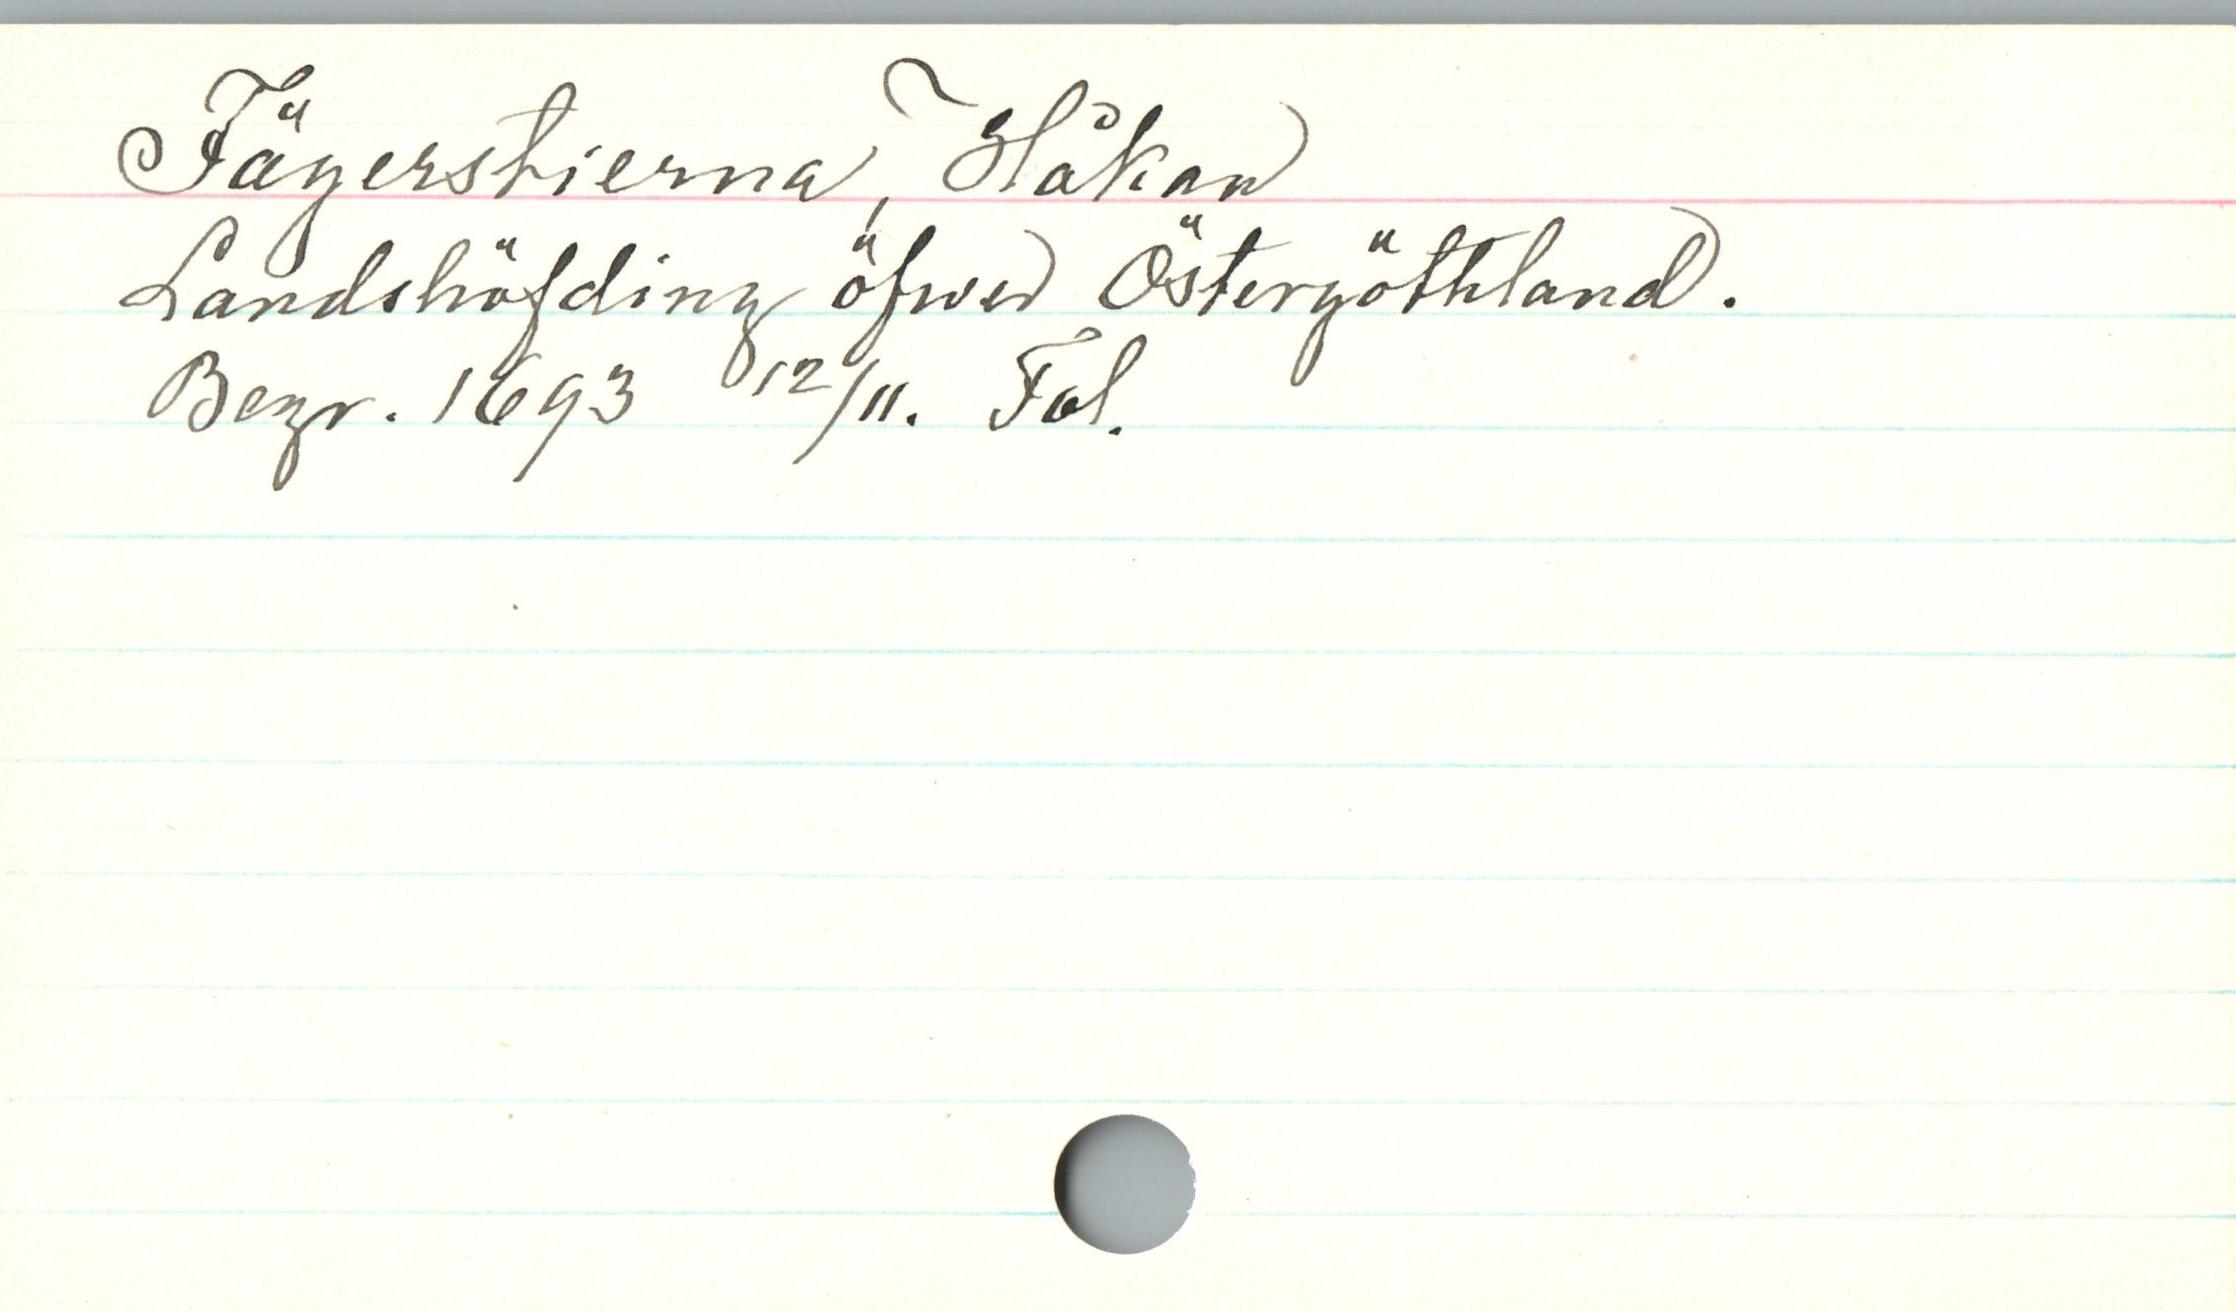 Fägerstierna, Håkan
Landshöfding öfwer Östergöthland.
Begr. 1693 12/11. Fol.